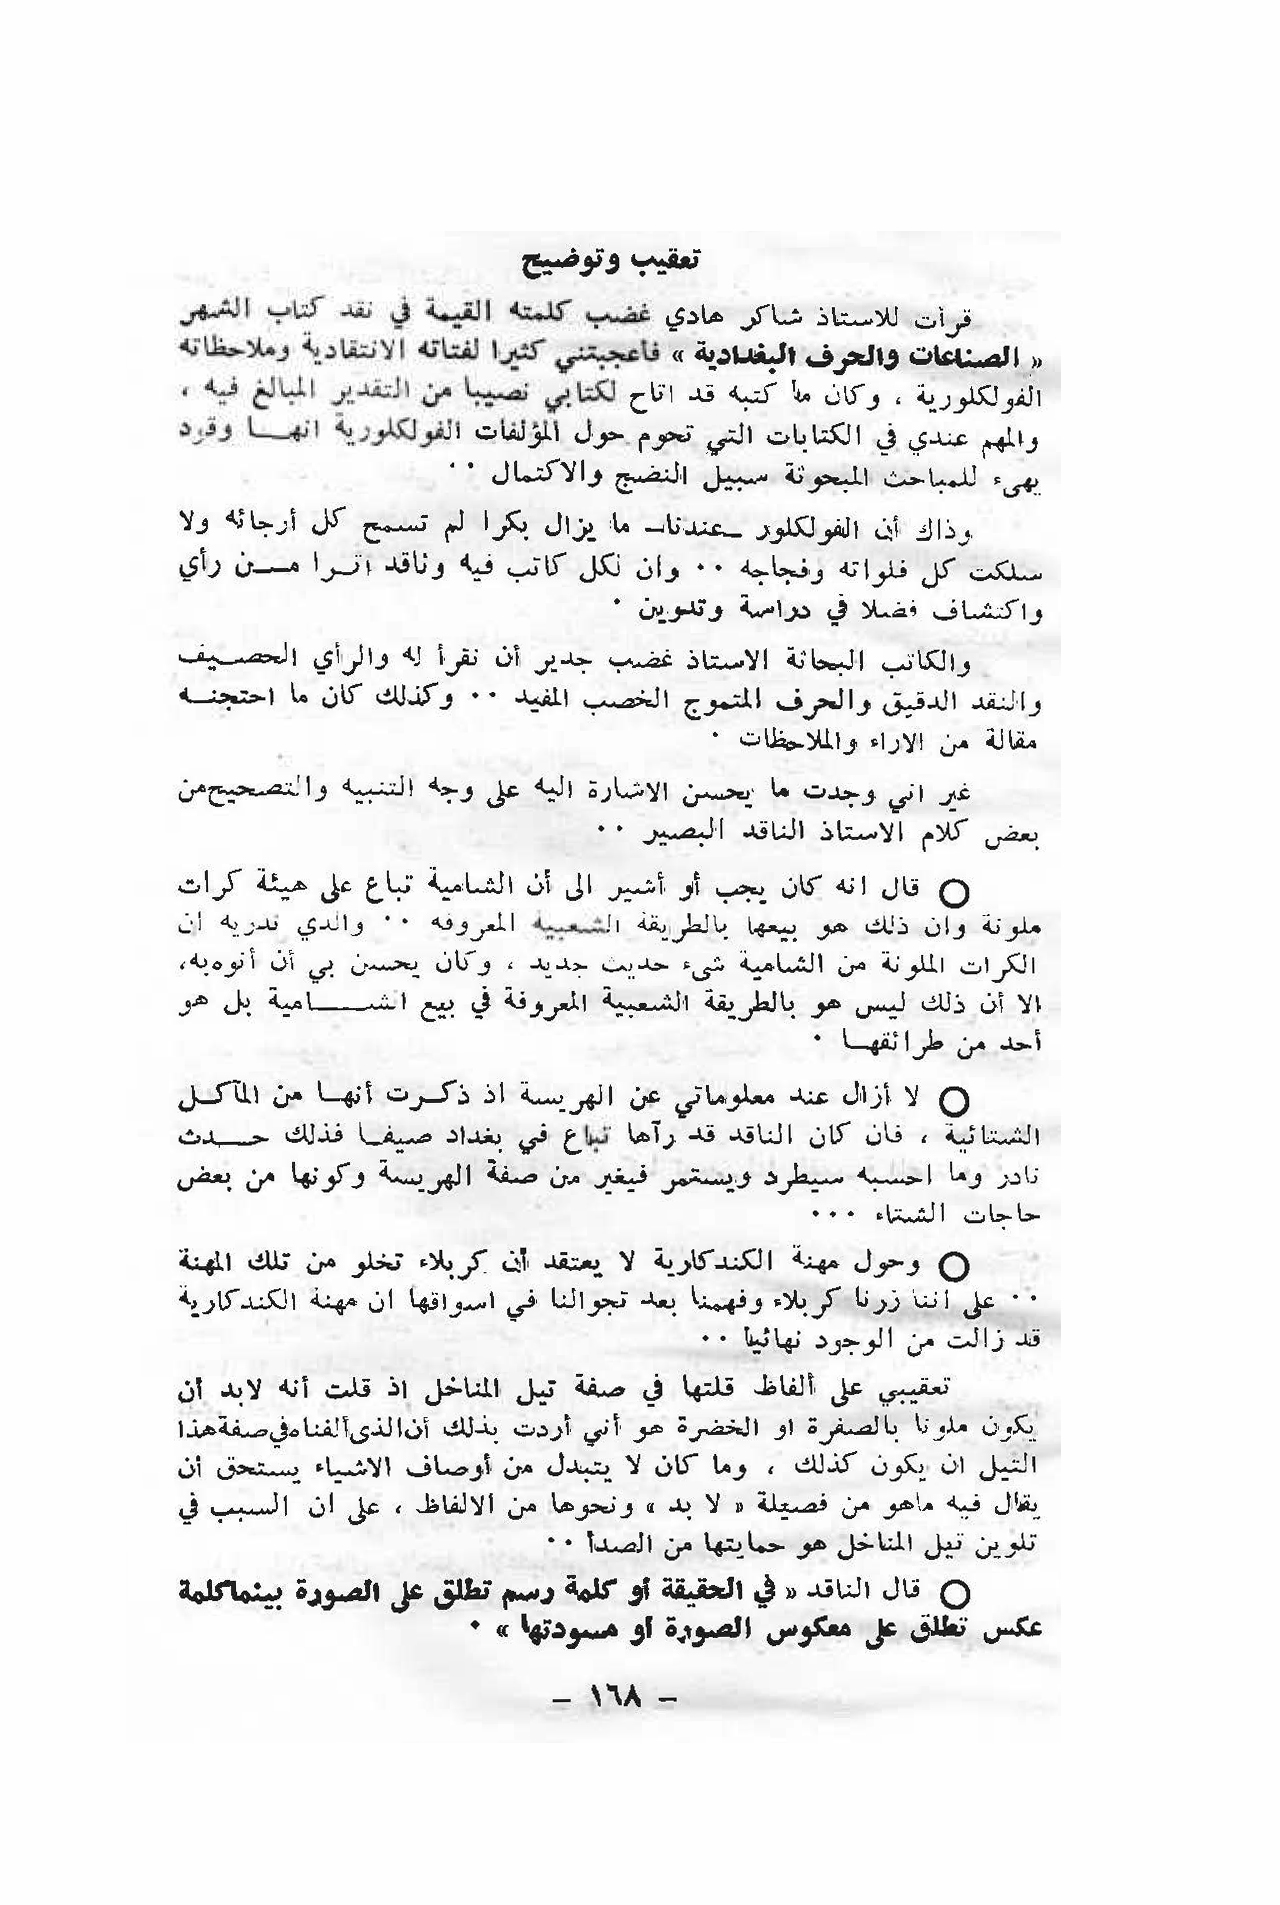 تعقيب وتوضيح
قرأت للاستاذ شاكر هادي غضب كلمته القيمة في نقد كتاب الشهر
« الصناعات والحرف البغدادية » فأعجبتني كثيرا لفتاته الانتقادية وملاحظاته
الفولكلورية ، وكان ما كتبه قد اتاح لكتابي نصيبا من التقدير المبالغ فيه ،
والمهم عندي في الكتابات التي تحوم حول المؤلفات الفولكلورية انهــا وقود
يهيء للمباحث المبحوثة سبيل النضج والاكتمال ٠٠
وذاك أن الفولكلور ـ عندنا ـ ما يزال بكرا لم تسمح كل أرجائه ولا
سلكت كل فلواته وفجاجه ٠٠ وان لكل كاتب فيه وناقد أثــرا مــن رأي
واكتشاف فضلا في دراسة وتدوين ٠
والكاتب البحاثة الاستاذ غضب جدير أن نقرأ له والرأي الحصــيف
والنقد الدقيق والحرف المتموج الخصب المفيد ٠٠ وكذلك كان ما احتجنــه
مقالة من الاراء والملاحظات ٠
غير اني وجدت ما يحسن الاشارة اليه على وجه التنبيه والتصحيح من
بعض كلام الاستاذ الناقد البصير ٠٠
○ قال انه كان يجب أو أشير الى أن الشامية تباع على هيئة كرات
ملونة وان ذلك هو بيعها بالطريقة الشعبية المعروفة ٠٠ والذي ندريه ان
الكرات الملونة من الشامية شيء حديث جديد ، وكان يحسن بي أن أنوه به،
الا أن ذلك ليس هو بالطريقة الشعبية المعروفة في بيع الشــــامية بل هو
أحد من طرائقهــا ٠
○ لا أزال عند معلوماتي عن الهريسة اذ ذكــرت أنهــا من المآكــل
الشتائية ، فان كان الناقد قد رآها تباع في بغداد صيفــا فذلك حــدث
نادر وما احسبه سيطرد ويستمر فيغير من صفة الهريسة وكونها من بعض
حاجات الشتاء ٠٠٠
○ وحول مهنة الكندكارية لا يعتقد أن كربلاء تخلو من تلك المهنة
٠٠ على اننا زرنا كربلاء وفهمنا بعد تجوالنا في اسواقها ان مهنة الكندكارية
قد زالت من الوجود نهائيا ٠٠
تعقيبي على ألفاظ قلتها في صفة تيل المناخل اذ قلت أنه لابد أن
يكون ملونا بالصفرة او الخضرة هو أني أردت بذلك أن الذي ألفناه في صفة هذا
التيل ان يكون كذلك ، وما كان لا يتبدل من أوصاف الاشياء يستحق أن
يقال فيه ماهو من فصيلة « لا بد » ونحوها من الالفاظ ، على ان السبب في
تلوين تيل المناخل هو حمايتها من الصدأ ٠٠
○ قال الناقد « في الحقيقة أو كلمة رسم تطلق على الصورة بينما كلمة
عكس تطلق على معكوس الصورة أو مسودتها » ٠
– ١٦٨ –